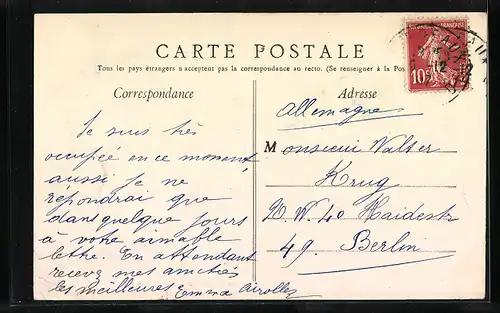 CARTE POSTALE
Tous les pays étrangers n'acceptent pas la correspondance au recto. (Se renseigner à la Pos
Correspondance
Adresse
Je suis très
occupée en ce moment,
aussi je ne
répondrai que
dans quelque jours
à votre aimable
lettre. En attendant
recevez mes amitiés
les meilleures Emma
Allemagne
Monsieur Walter
Krug
N.W. 40 Haidestr
49. Berlin
10
12